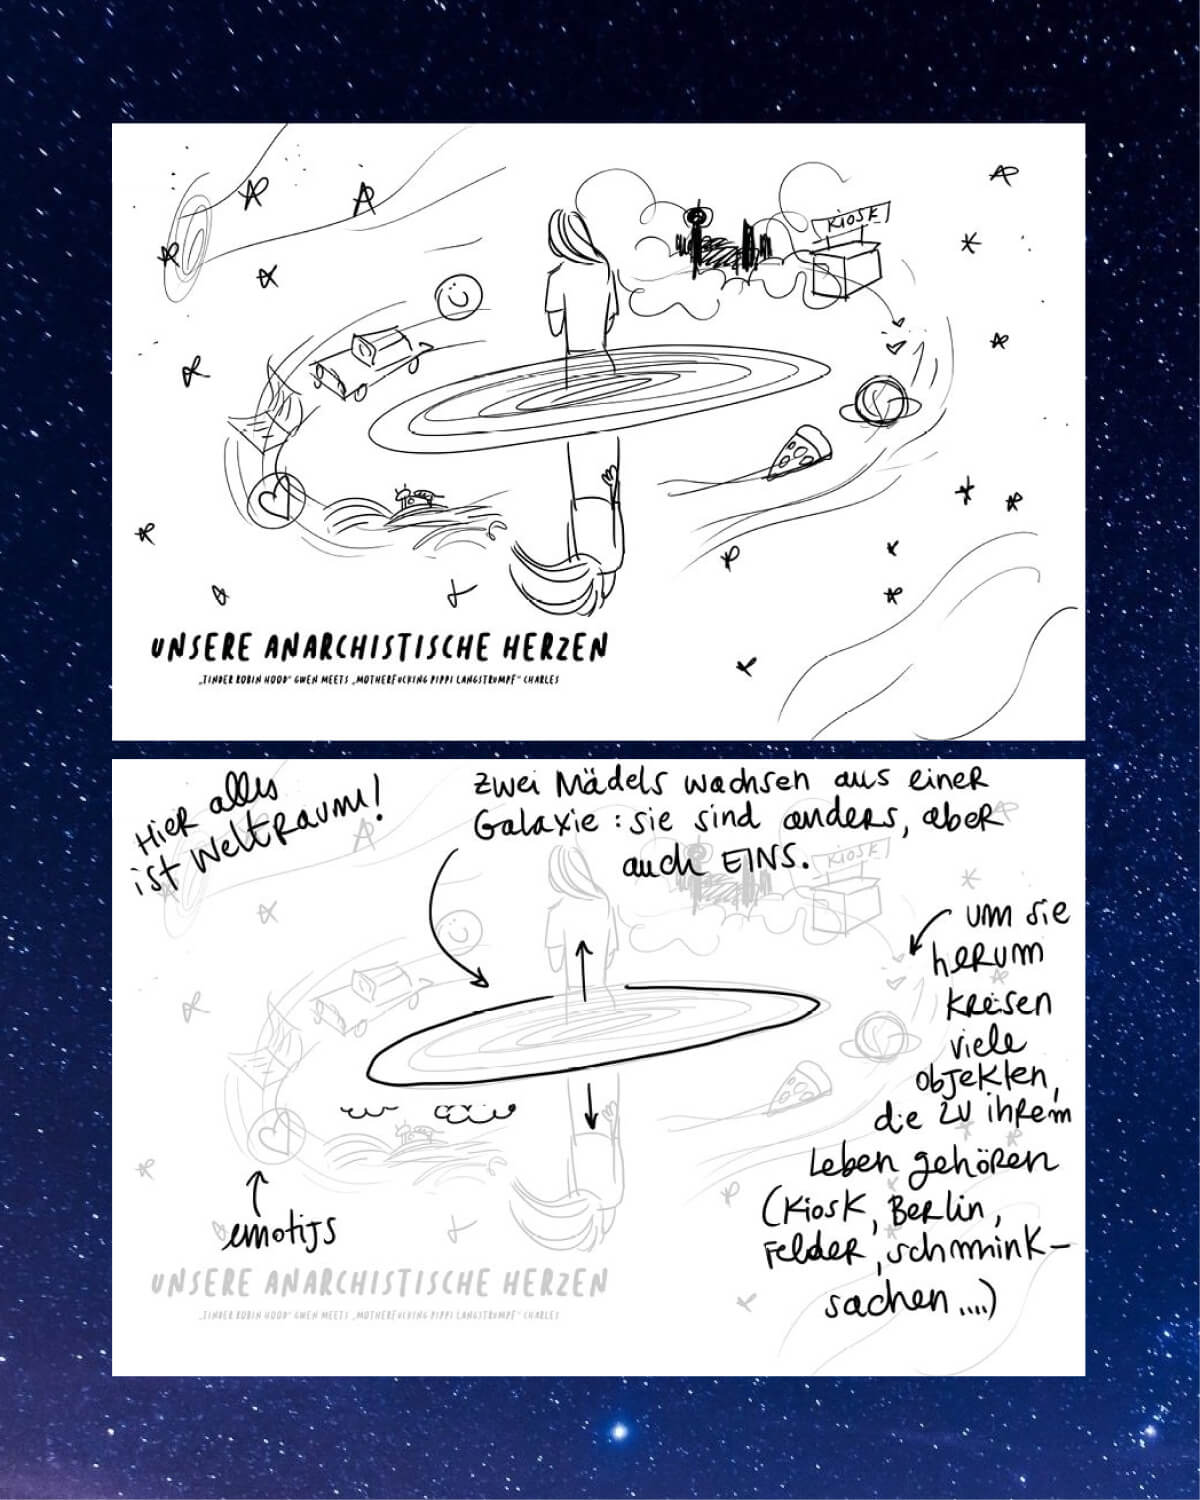 KIOSK
UNSERE ANARCHISTISCHE HERZEN
„TINDER ROBIN HOOD“ GWEN MEETS „MOTHERFUCKING PIPPI LANGSTRUMPF“ CHARLES
Hier alles
ist Weltraum!
Zwei Mädels wachsen aus einer
Galaxie: sie sind anders, aber
auch EINS.
KIOSK
um sie
herum
kreisen
viele
objekten,
die zu ihrem
Leben gehören
(Kiosk, Berlin,
Felder, schmink-
sachen....)
emotijs
UNSERE ANARCHISTISCHE HERZEN
„TINDER ROBIN HOOD“ GWEN MEETS „MOTHERFUCKING PIPPI LANGSTRUMPF“ CHARLES